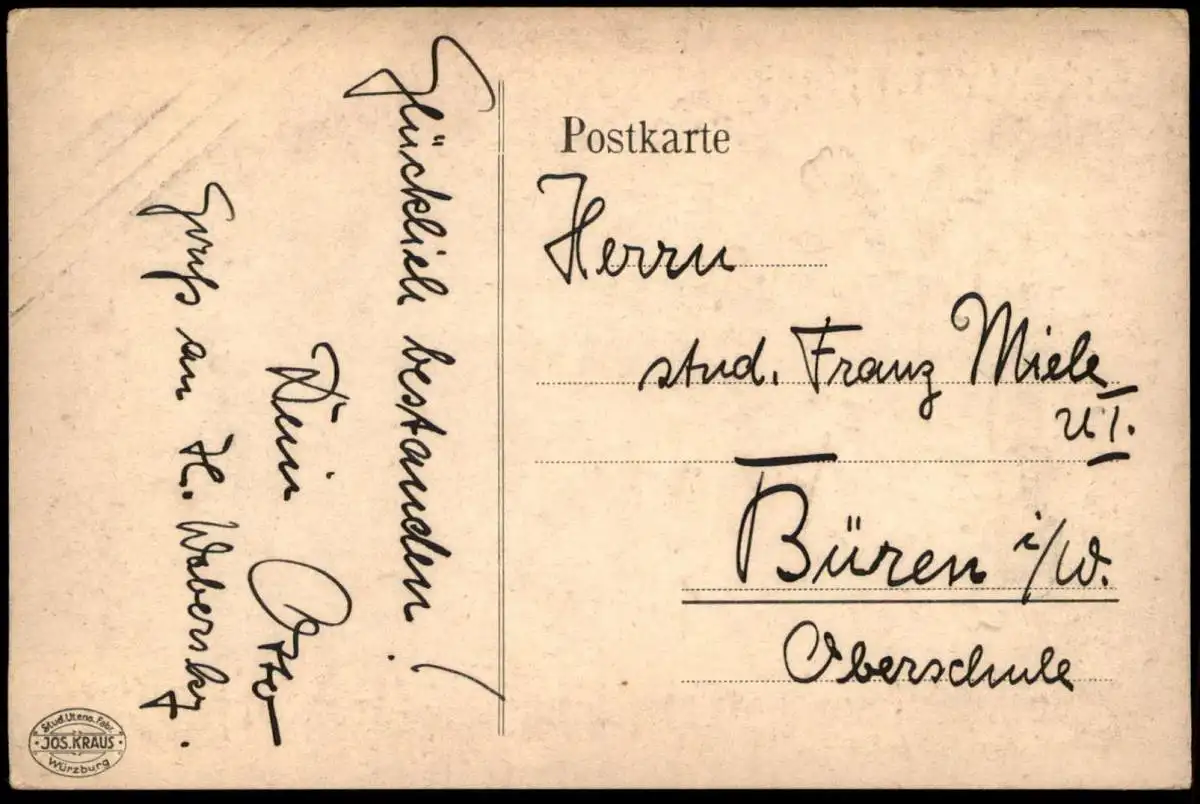 Glücklich bestanden!
Dein Otto
Gruß an H. Wabersky.
Postkarte
Herrn
stud. Franz Miele
U I.
Büren i/W.
Oberschule
Stud. Utens. Fabr.
JOS. KRAUS
Würzburg